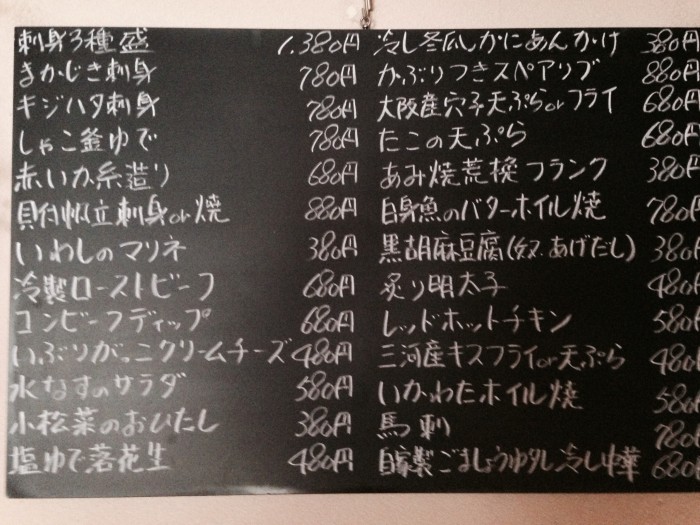 刺身3種盛 1,380円
まかじき刺身 780円
キジハタ刺身 780円
しゃこ釜ゆで 780円
赤いか糸造り 680円
貝付帆立刺身or焼 880円
いわしのマリネ 380円
冷製ローストビーフ 680円
コンビーフディップ 680円
いぶりがっこクリームチーズ 480円
水なすのサラダ 580円
小松菜のおひたし 380円
塩ゆで落花生 480円
冷し冬瓜しかにあんかけ 380円
かぶりつきスペアリブ 880円
大阪産穴子天ぷらorフライ 680円
たこの天ぷら 680円
あみ焼荒挽フランク 380円
白身魚のバターホイル焼 780円
黒胡麻豆腐(奴.あげだし) 380
炙り明太子 480
レッドホットチキン 580
三河産キスフライor天ぷら 480
いかわたホイル焼 580
馬刺 780
自家製ごましょうゆタレ冷し中華 680